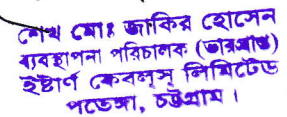 শেখ মোঃ জাকির হোসেন
ব্যবস্থাপনা পরিচালক (ভারপ্রাপ্ত)
ইষ্টার্ণ কেবল্‌স্ লিমিটেড
পতেঙ্গা, চট্টগ্রাম।